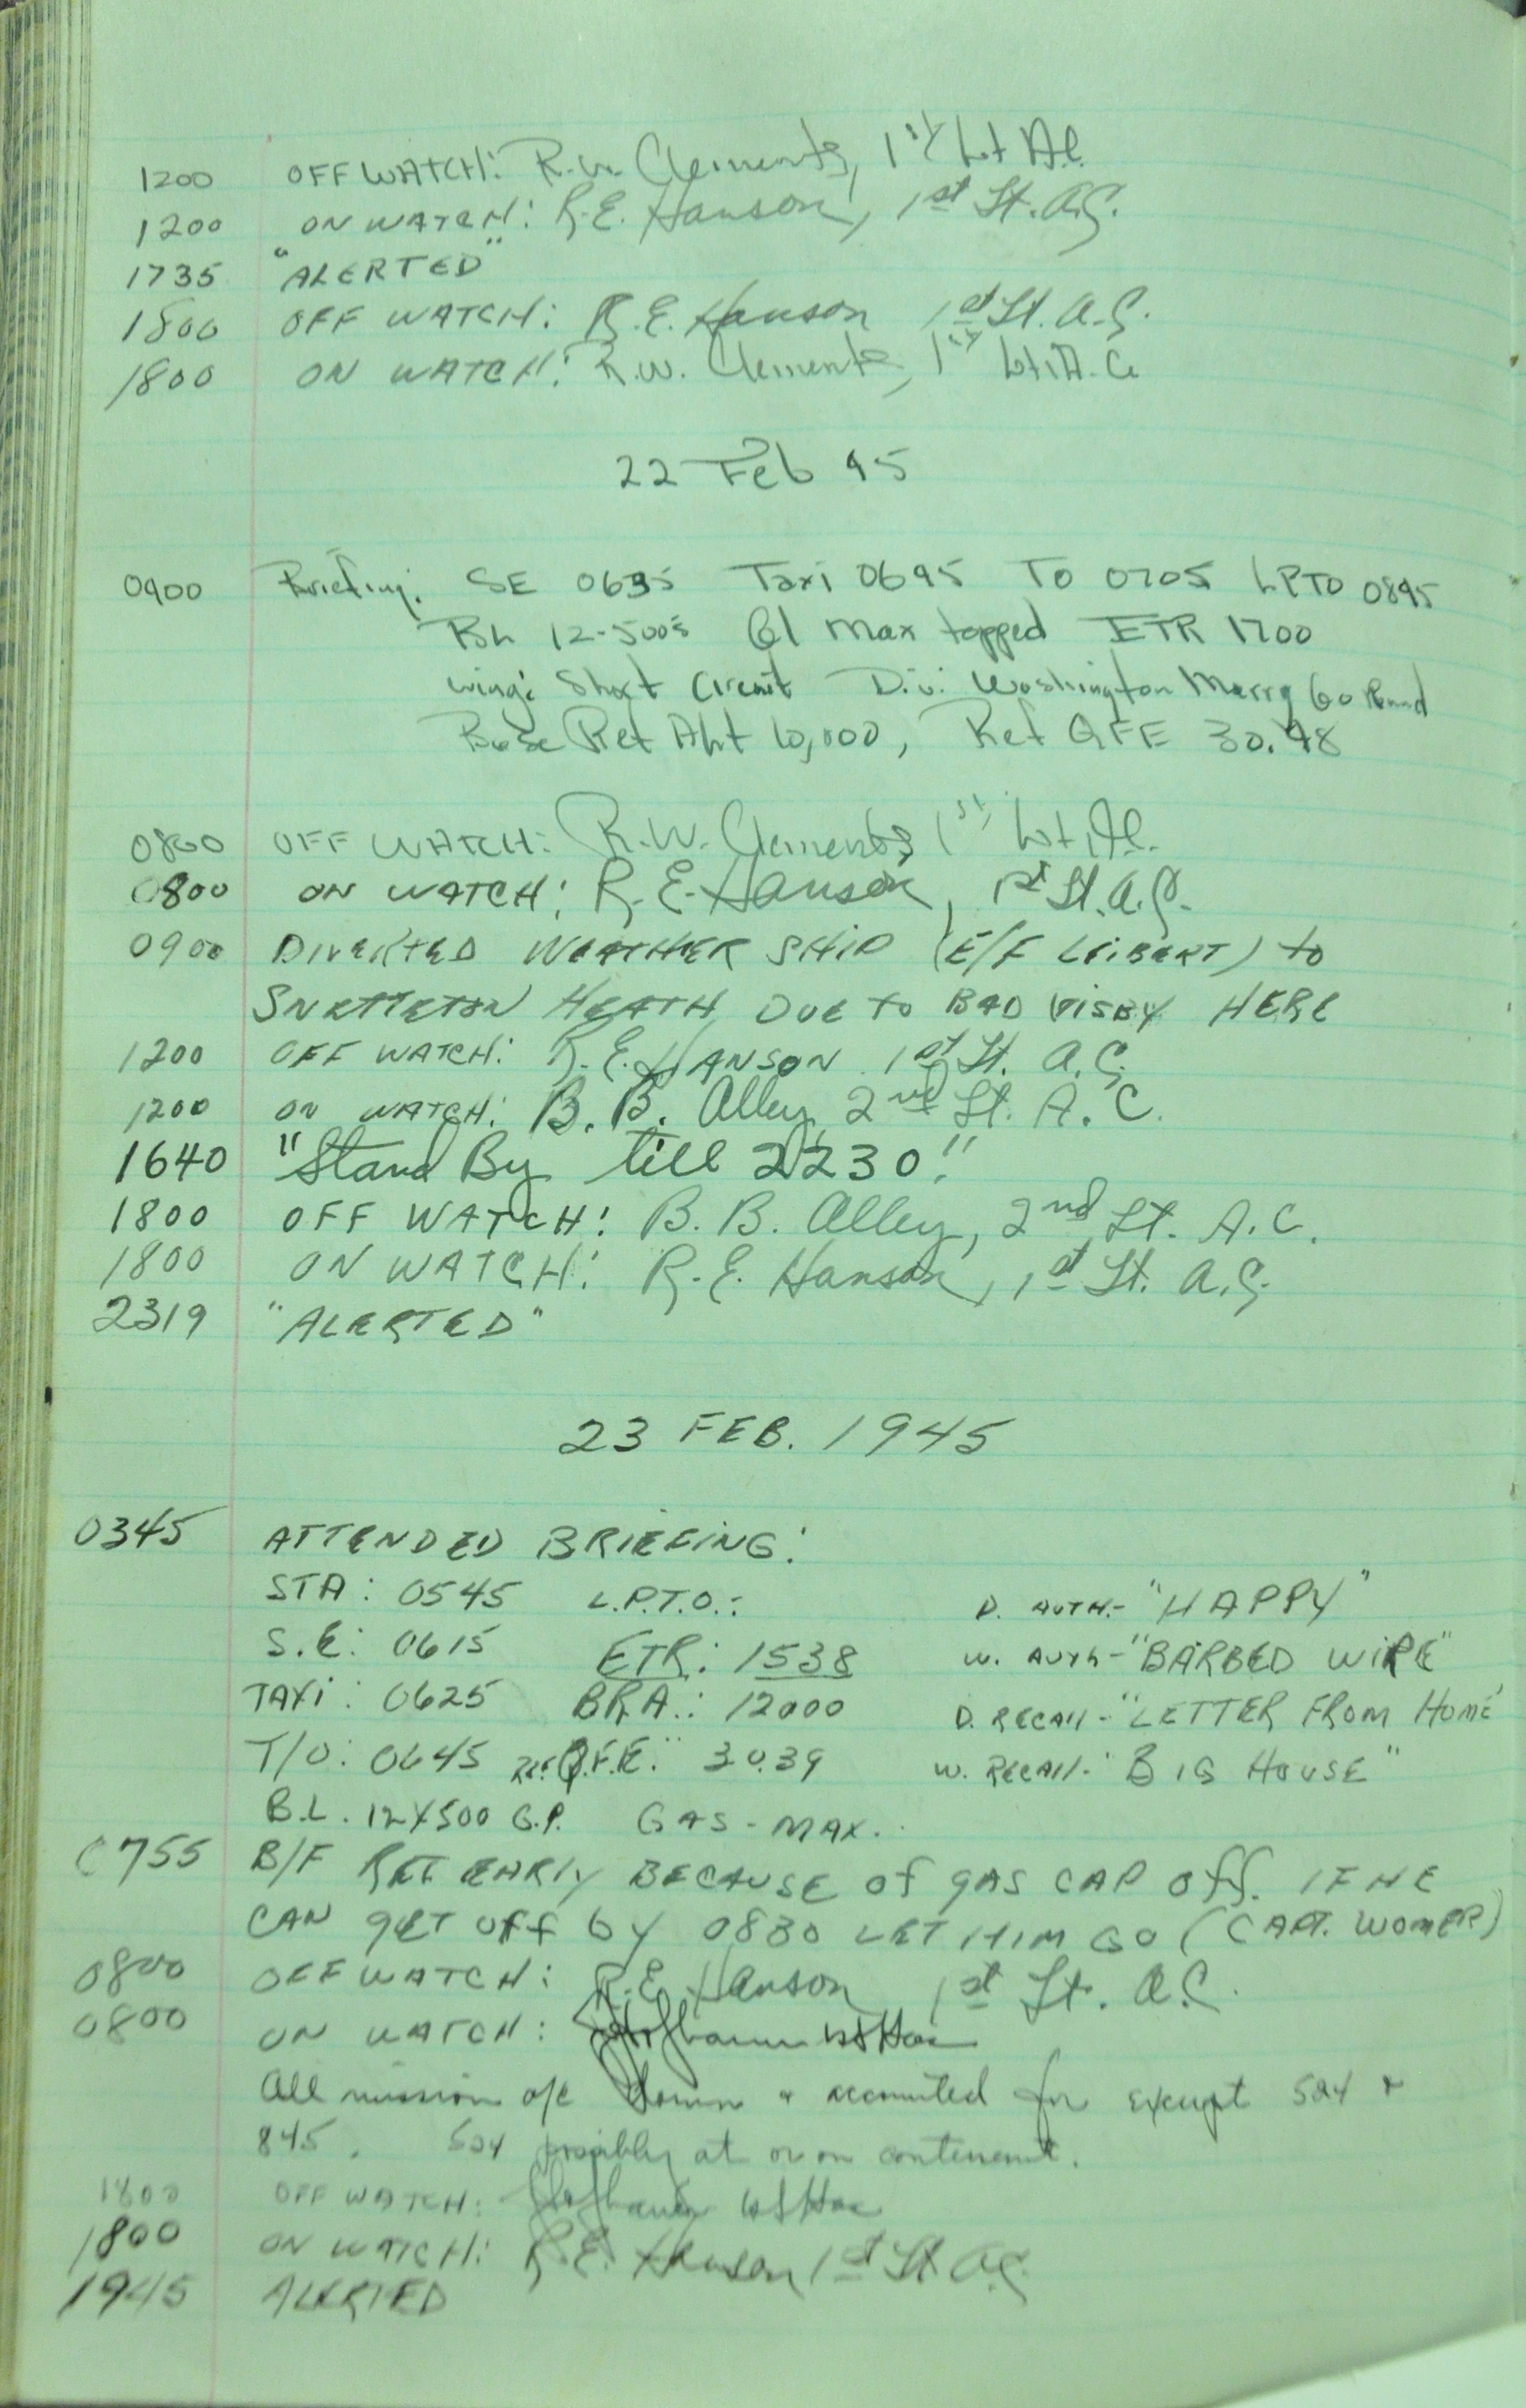 1200 OFF WATCH: R.W. Clements, 1st Lt A.C.
1200 ON WATCH: R.E. Hanson, 1st Lt. A.C.
1735 "ALERTED"
1800 OFF WATCH: R.E. Hanson 1st Lt. A.C.
1800 ON WATCH: R.W. Clements, 1st Lt. A.C.
22 Feb 45
0400 Briefing: SE 0635 Taxi 0645 TO 0705 LPTO 0845
BL 12-500's Gl Max topped ETR 1700
Wing: Short Circuit Div: Washington Merry Go Round
Base Ret Alt 10,000, Ret QFE 30.48
0800 OFF WATCH: R.W. Clements, 1st Lt. A.C.
0800 ON WATCH: R.E. Hanson, 1st Lt. A.C.
0900 DIVERTED WEATHER SHIP (E/F LEIBERT) to
SNETTERTON HEATH DUE to BAD VISBY HERE
1200 OFF WATCH: R.E. HANSON 1st Lt. A.C.
1200 ON WATCH: B.B. Alley, 2nd Lt. A.C.
1640 "Stand By till 2230!"
1800 OFF WATCH: B.B. Alley, 2nd Lt. A.C.
1800 ON WATCH: R.E. Hanson, 1st Lt. A.C.
2319 "ALERTED"
23 FEB. 1945
0345 ATTENDED BRIEFING:
STA: 0545 L.P.T.O.: D. AUTH.- "HAPPY"
S.E: 0615 ETR: 1538 W. AUTH- "BARBED WIRE"
TAXI: 0625 B.R.A.: 12000 D. RECALL- "LETTER FROM HOME"
T/O: 0645 Ret. Q.F.E.: 30.39 W. RECALL- "BIG HOUSE"
B.L. 12X500 G.P. GAS - MAX.
0755 B/F RET EARLY BECAUSE of gAS CAP Off. IF HE
CAN gET off by 0830 LET HIM GO (CAPT. WOMER)
0800 OFF WATCH: R.E. Hanson 1st Lt. A.C.
0800 ON WATCH:
All mission a/c down & accounted for except 524 &
845. 524 possibly at or on contenent.
1800 OFF WATCH:
1800 ON WATCH: R.E. Hanson 1st Lt. A.C.
1945 ALERTED